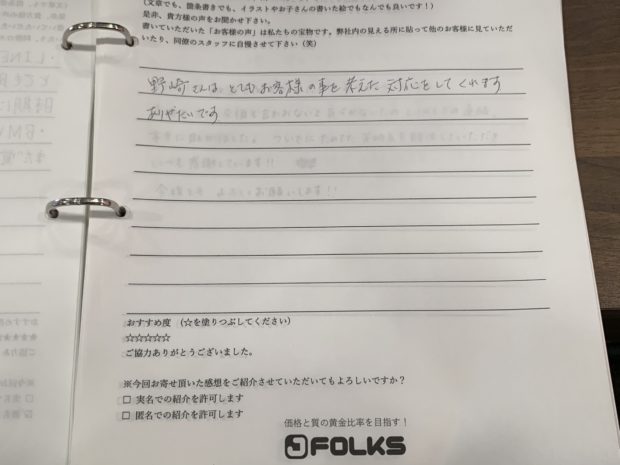 (文章でも、箇条書きでも、イラストやお子さんの書いた絵でもなんでも良いです！)
是非、貴方様の声をお聞かせ下さい。
書いていただいた「お客様の声」は私たちの宝物です。弊社内の見える所に貼って他のお客様に見ていただ
いたり、同僚のスタッフに自慢させて下さい（笑）
野崎さんは、とてもお客様の事を考えた対応をしてくれます
ありがたいです
おすすめ度　（☆を塗りつぶしてください）
☆☆☆☆☆
ご協力ありがとうございました。
※今回お寄せ頂いた感想をご紹介させていただいてもよろしいですか？
□ 実名での紹介を許可します
□ 匿名での紹介を許可します
価格と質の黄金比率を目指す！
FOLKS